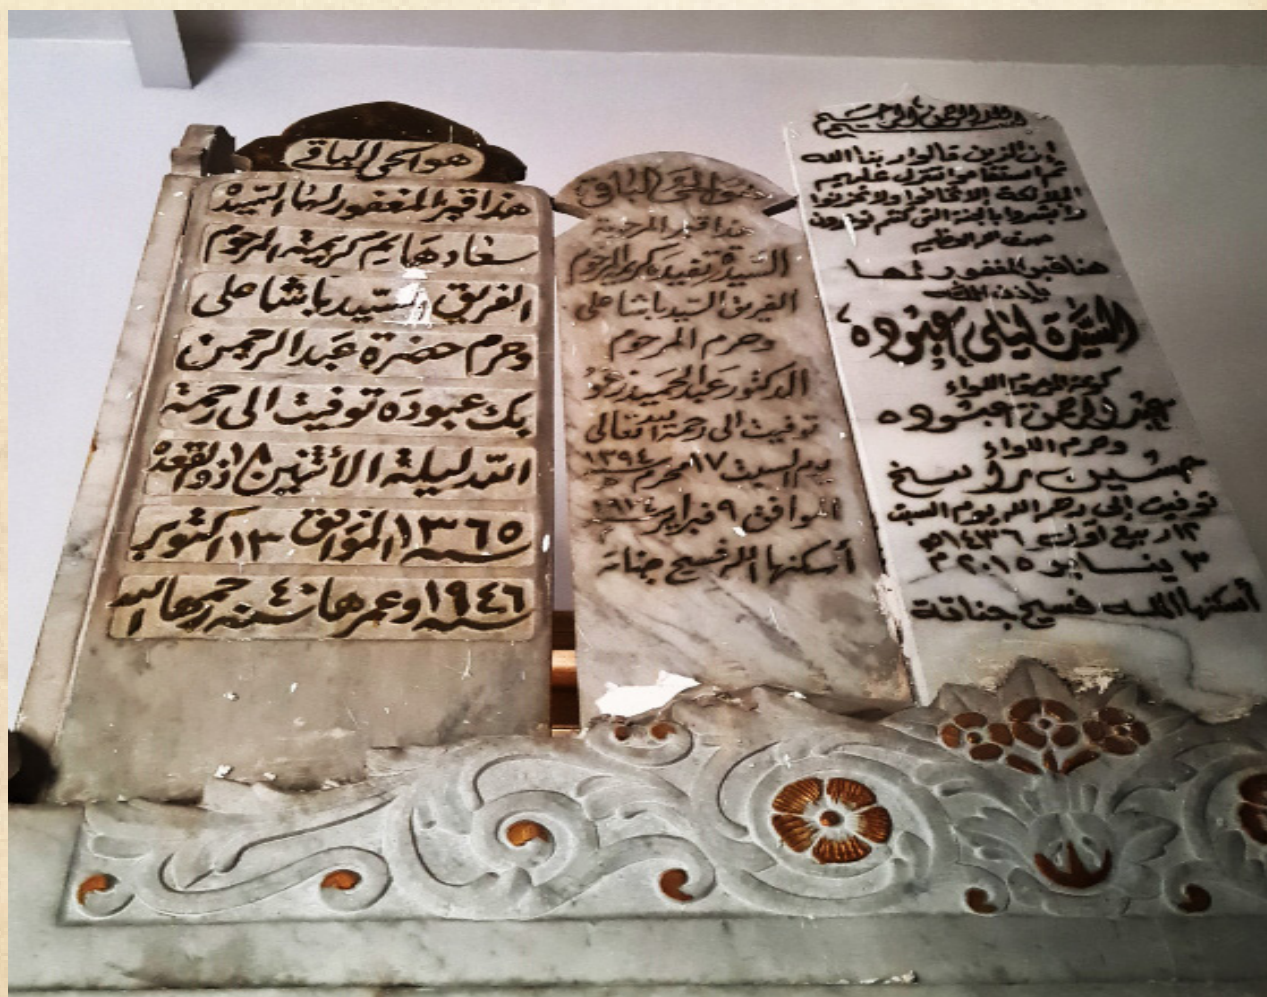 هو الحي الباقي
هذا قبر المغفور لها السيدة
سعاد هانم كريمة المرحوم
الفريق السيد باشا على
وحرم حضرة عبد الرحمن
بك عبوده توفيت الى رحمة
الله ليلة الأثنين ١٨ ذو القعده
سنة ١٣٦٥ الموافق ١٣ اكتوبر
سنة ١٩٤٦ وعمرها ٤٠ سنة رحمها الله
هو الحي الباقي
هذا قبر المرحومة
السيدة تفيده كريمة المرحوم
الفريق السيد باشا على
وحرم المرحوم
الدكتور عبد الحميد
توفيت الى رحمة الله تعالى
يوم السبت ١٧ محرم سنة ١٣٩٤
الموافق ٩ فبراير
أسكنها الله فسيح جناته
بسم الله الرحمن الرحيم
إن الذين قالوا ربنا الله
ثم استقاموا تتنزل عليهم
الملائكة ألا تخافوا ولا تحزنوا
وابشروا بالجنة التى كنتم توعدون
صدق الله العظيم
هنا قبر المغفور لها
بإذن الله
السيدة ليلى عبوده
كريمة المرحوم اللواء
عبد الرحمن عبوده
وحرم اللواء
حسين راسخ
توفيت إلى رحمة الله يوم السبت
١٢ ربيع أول ١٤٣٦ هـ
٣ يناير ٢٠١٥ م
أسكنها الله فسيح جناته